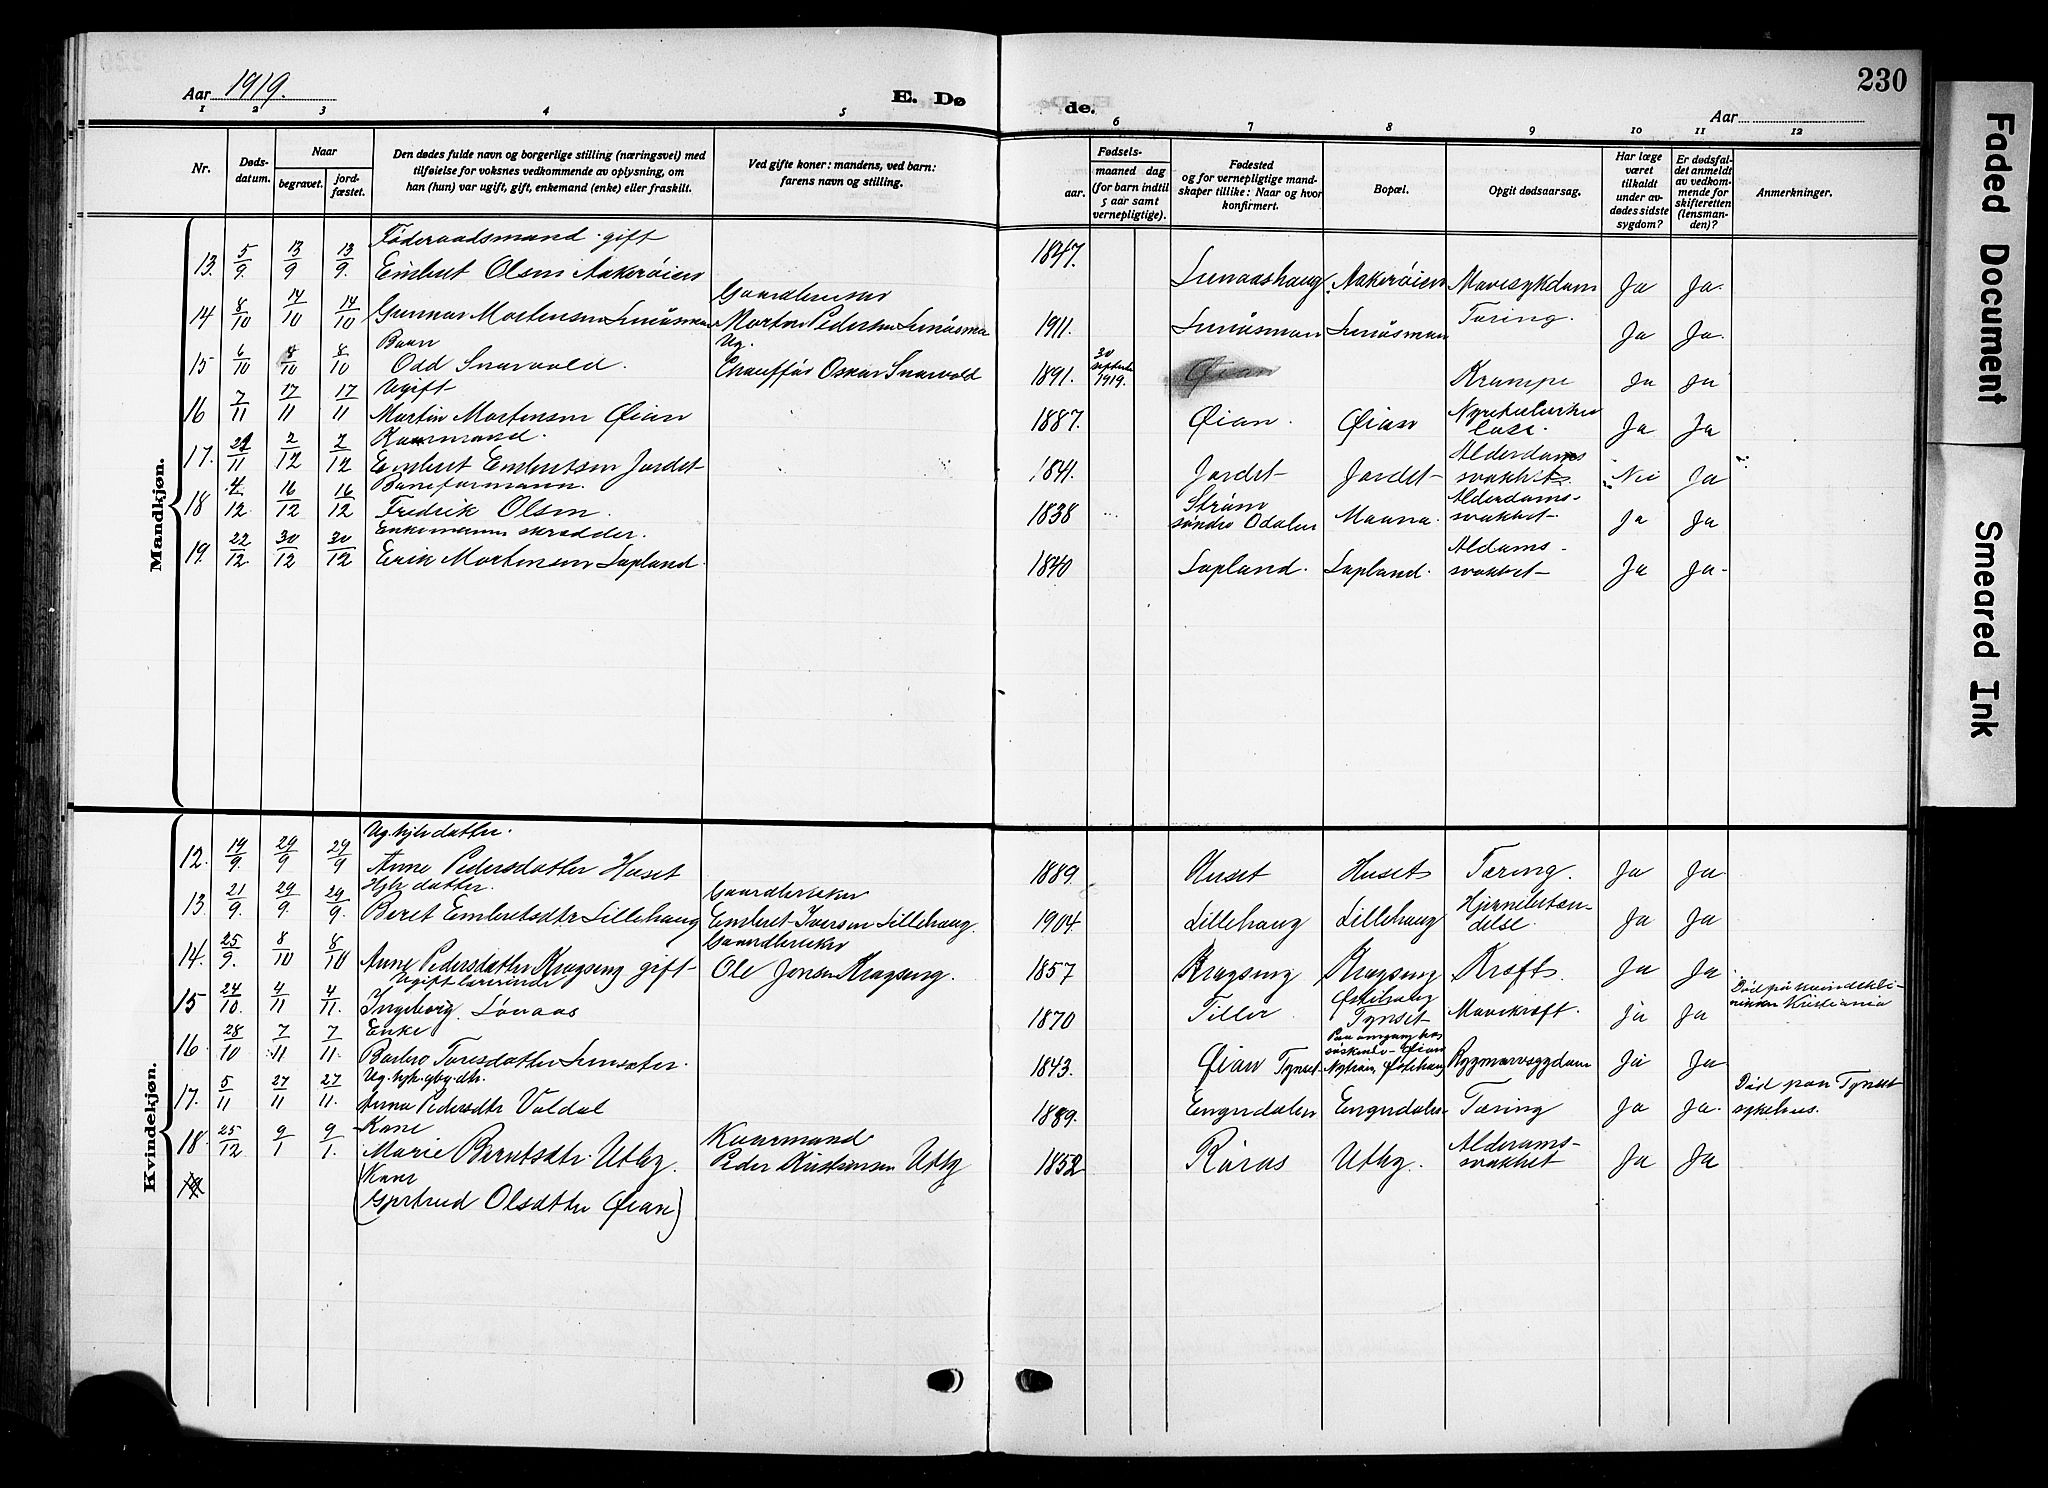 230
Aar 1919.
E. Dø
de.
Aar
1 2 3 4 5 6 7 8 9 10 11 12
Nr.
Døds-
datum.
Naar
begravet.
jord-
fæstet.
Den dødes fulde navn og borgerlige stilling (næringsvei) med
tilføielse for voksnes vedkommende av oplysning, om
han (hun) var ugift, gift, enkemand (enke) eller fraskilt.
Ved gifte koner: mandens, ved barn:
farens navn og stilling.
Fødsels-
aar.
maaned dag
(for barn indtil
5 aar samt
vernepligtige).
Fødested
og for vernepligtige mand-
skaper tillike: Naar og hvor
konfirmert.
Bopæl.
Opgit dødsaarsag.
Har læge
været
tilkaldt
under av-
dødes sidste
sygdom?
Er dødsfal-
det anmeldt
av vedkom-
mende for
skifteretten
(lensman-
den)?
Anmerkninger.
Mandkjøn.
Føderaadsmand gift
13. 5/9. 13/9 13/9. Embret Olsen Aakerøien 1847. Aakerøien Mavesykdom Ja Ja.
Gaardbruker
14 8/10 14/10 14/10 Gunnar Mortensen Morten Pedersen 1911. Tæring. Ja Ja.
Barn Ug.
15 6/10 8/10 8/10 Odd Snarvold. Chauffør Oskar Snarvold 1891. 30 septemb 1919. Øian Krampe Ja Ja
Ugift
16 7/11 17/11 17/11 Martin Mortensen Øian 1887. Øian. Øian Ja Ja
Kaarmand.
17. 2/12 2/12 Embret Embretsen Jordet 1841. Jordet Jordet Alderdoms
svakhet. Nei Ja
Baneformann.
18 4/12 16/12 16/12 Fredrik Olsen. 1838 Strøm
søndre Odalen Maana. Alderdoms-
svakhet Ja Ja
Enkemann skrædder.
19. 22/12 30/12 30/12 Erik Mortensen Lapland. 1840 Lapland. Lapland. Aldoms-
svakhet Ja Ja
Kvindekjøn.
Ug. hjv datter.
12. 19/9. 29/9 29/9 Anne Pedersdatter Huset 1889. Huset Huset Tæring. Ja Ja
Hjv datter. Gaardbruker
13. 21/9. 29/9. 29/9. Beret Embretsdtr Lillehaug Embret Iversen Lillehaug. 1904. Lillehaug Lillehaug Hjernebetæn-
delse. Ja Ja
Gaardbruker
14. 25/9. 8/10 8/10 Anne Pedersdatter Kragseng gift Ole Jonsen Kragseng. 1857 Kragseng Kragseng Kræft Ja Ja
Ugift lærerinde
15 24/10. 4/11 4/11. Ingeborg Lønaas 1870 Tiller Tynset Mavekræft. Ja Ja Død på
Enke
16. 28/10 7/11 7/11. Barbro Toresdatter 1843. Øian Tynset Rygmarvsygdom Ja Ja
Ug. hjv. gby. dtr.
17. 5/11 27/11 27/11. Anna Pedersdtr Valdal 1889. Engerdalen Engerdalen Tæring Ja Ja. Død paa Tynset
sykehus.
Kone Kaarmand
18. 25/12 9/1 9/1. Marie Berntsdtr. Utby. Peder Kristiansen Utby 1852 Røros Utby. Alderdoms-
svakhet Ja Ja
Kone
19 (Gjertrud Olsdatter Øian)
Faded Document
Smeared Ink